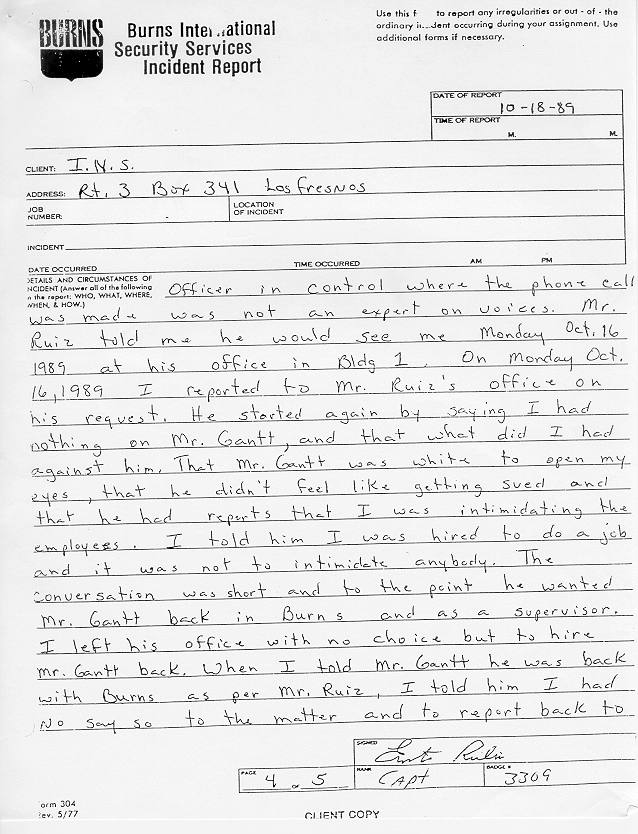 BURNS
Burns International
Security Services
Incident Report
Use this f to report any irregularities or out - of - the
ordinary in dent occurring during your assignment. Use
additional forms if necessary.
DATE OF REPORT
10-18-89
TIME OF REPORT
M. M.
CLIENT: I.N.S.
ADDRESS: Rt. 3 Box 341 Los Fresnos
JOB NUMBER:
LOCATION OF INCIDENT
INCIDENT
DATE OCCURRED TIME OCCURRED AM PM
DETAILS AND CIRCUMSTANCES OF
INCIDENT (Answer all of the following
in the report: WHO, WHAT, WHERE,
WHEN, & HOW.)
Officer in control where the phone call
was made was not an expert on voices. Mr.
Ruiz told me he would see me Monday Oct. 16
1989 at his office in Bldg 1. On Monday Oct.
16, 1989 I reported to Mr. Ruiz's office on
his request. He started again by saying I had
nothing on Mr. Gantt, and that what did I had
against him. That Mr. Gantt was white to open my
eyes, that he didn't feel like getting sued and
that he had reports that I was intimidating the
employees. I told him I was hired to do a job
and it was not to intimidate anybody. The
conversation was short and to the point he wanted
Mr. Gantt back in Burns and as a supervisor.
I left his office with no choice but to hire
Mr. Gantt back. When I told Mr. Gantt he was back
with Burns as per Mr. Ruiz, I told him I had
No say so to the matter and to report back to
SIGNED
PAGE 4 of 5
RANK CAPT
BADGE # 3309
orm 304
Rev. 5/77
CLIENT COPY